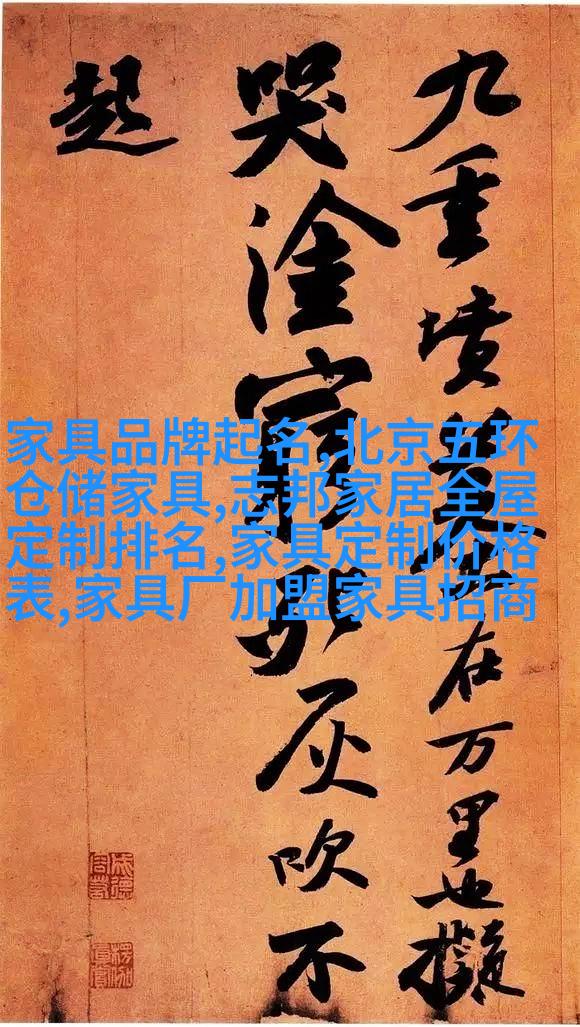 九重墳墓在万里也擬
哭塗窮死灰吹不
起
家具品牌起名,北京五环
仓储家具,志邦家居全屋
定制排名,家具定制价格
表,家具厂加盟家具招商
成德
容若
楞伽
真賞